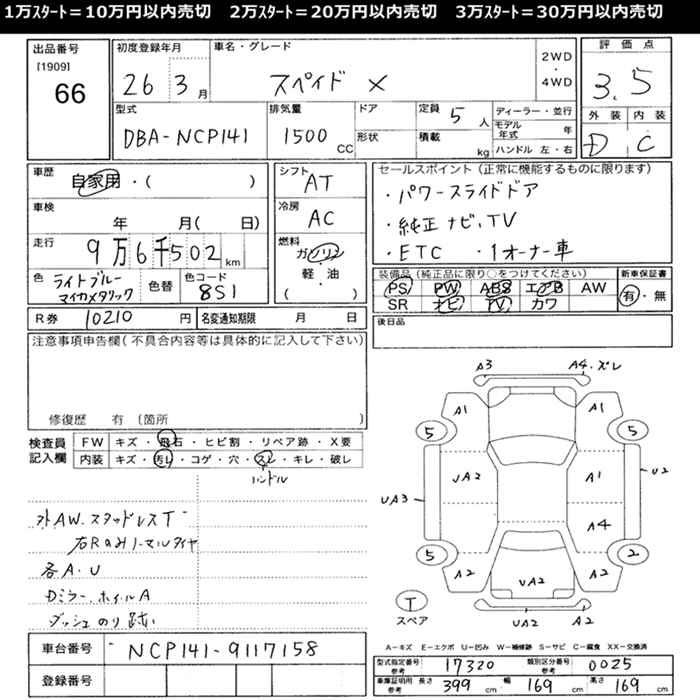 1万ｽﾀｰﾄ＝10万円以内売切　2万ｽﾀｰﾄ＝20万円以内売切　3万ｽﾀｰﾄ＝30万円以内売切
出品番号
[1909]
66
初度登録年月
26 3月
車名・グレード
スペイド X
2WD
・
4WD
評価点
3.5
型式
DBA-NCP141
排気量
1500 CC
ドア
形状
定員 5 人
積載 kg
ディーラー・並行
モデル年式 年
ハンドル 左・右
外装 内装
D C
車歴
自家用・( )
車検
年 月( 日)
走行
9万6千502 km
色 ライトブルーマイカメタリック
色替
色コード 8S1
シフト
AT
冷房
AC
燃料
ガソリン
軽・油
( )
セールスポイント(正常に機能するものに限ります)
・パワースライドドア
・純正ナビ、TV
・ETC ・1オーナー車
装備品(純正品に限り○をつけてください)
PS PW ABS エアB AW
SR ナビ TV カワ
新車保証書
有・無
R券 10210 円
名変通知期限 月 日
後日品
注意事項申告欄(不具合内容等は具体的に記入して下さい)
修復歴 有 (箇所 )
検査員記入欄
FW キズ・飛石・ヒビ割・リペア跡・X要
内装 キズ・汚レ・コゲ・穴・スレ・キレ・破レ
ハンドル
外AW.スタッドレスT
右Rのみノーマルタイヤ
各A.U
Dミラー.ホイルA
ダッシュのり跡
A3 A4.ズレ
A1 A1
5 5
UA2 A1
UA3 U2
A4
5 2
A2 UA2 A2
UA2 A2
T
スペア
A−キズ E−エクボ U−凹み W−補修跡 S−サビ C−腐食 XX−交換済
車台番号 NCP141-9117158
登録番号
型式指定番号 参考 17320
類別区分番号 参考 0025
車庫証明用 参考 長さ 399 cm 幅 169 cm 高さ 169 cm